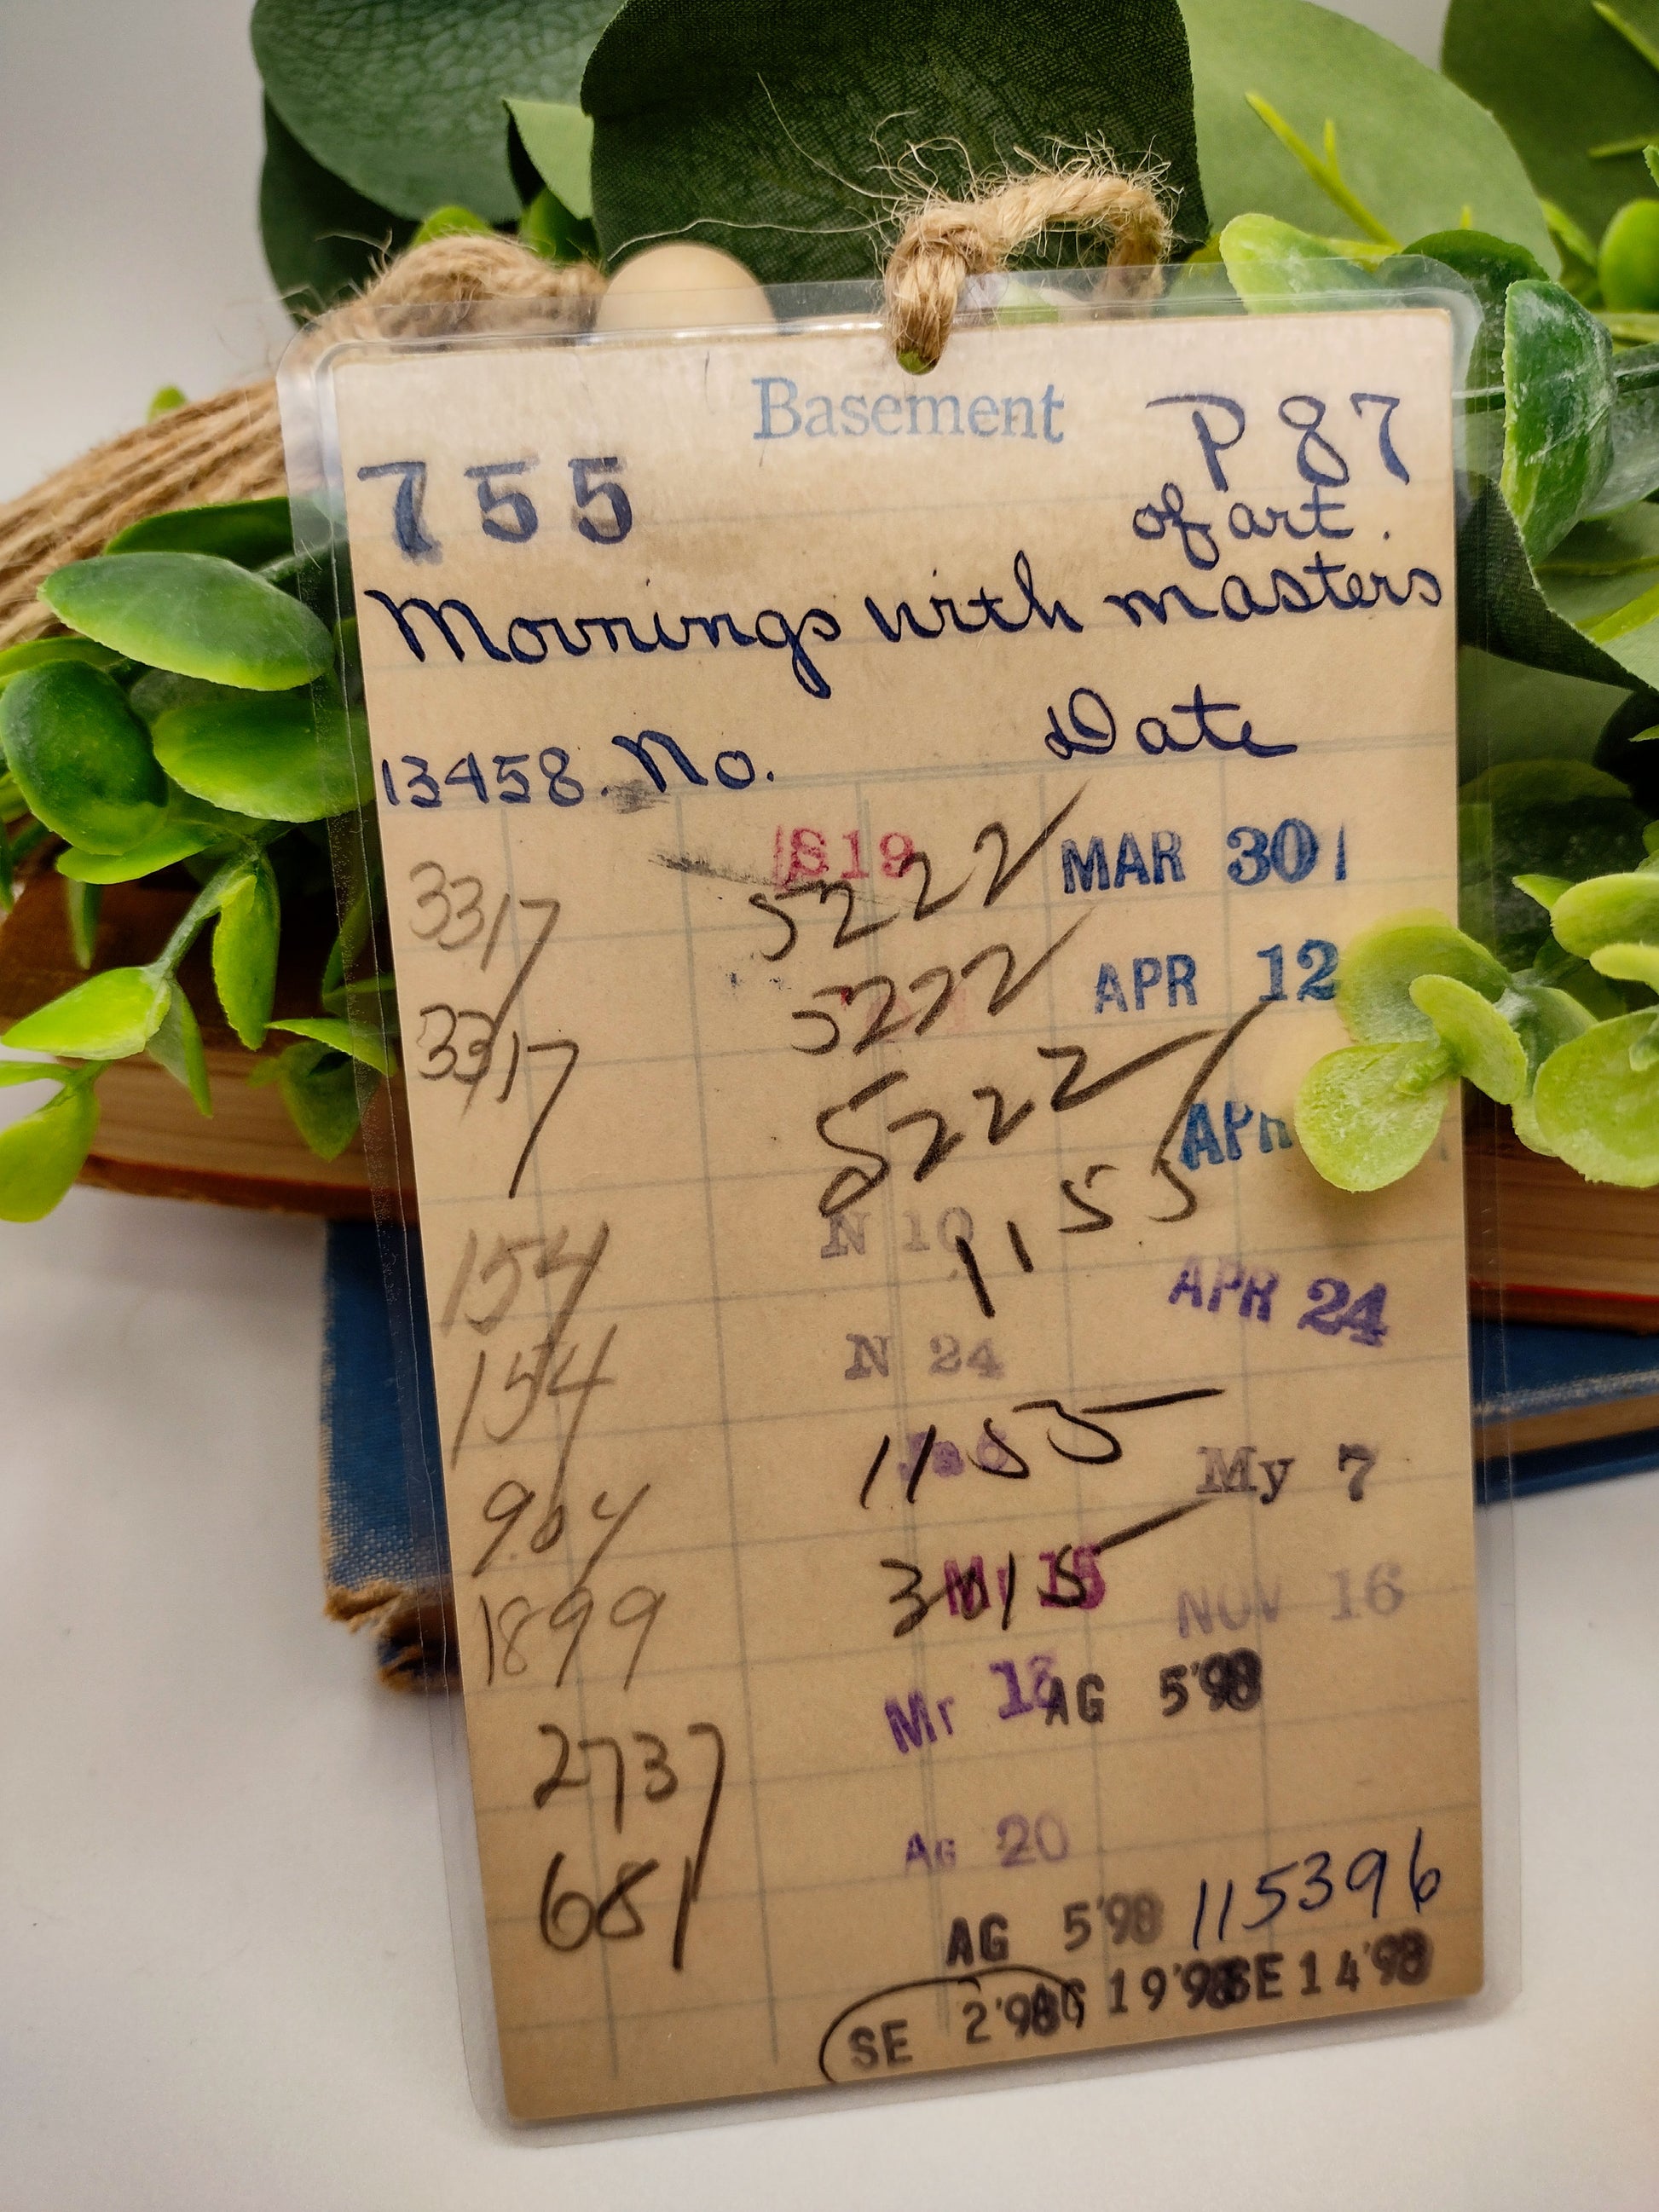 Basement
755 P87
of art.
Mornings with masters
13458. No. Date
S19
3317 5222 MAR 30
3317 5222 APR 12
5222
APR
N 10 1155
154 APR 24
N 24
154 1155
My 7
964 3015
Mr 15
1899 NOV 16
Mr 18 AG 5'98
2737
Ag 20
681
AG 5'98 115396
SE 2'98 AG 19'98 SE 14'98